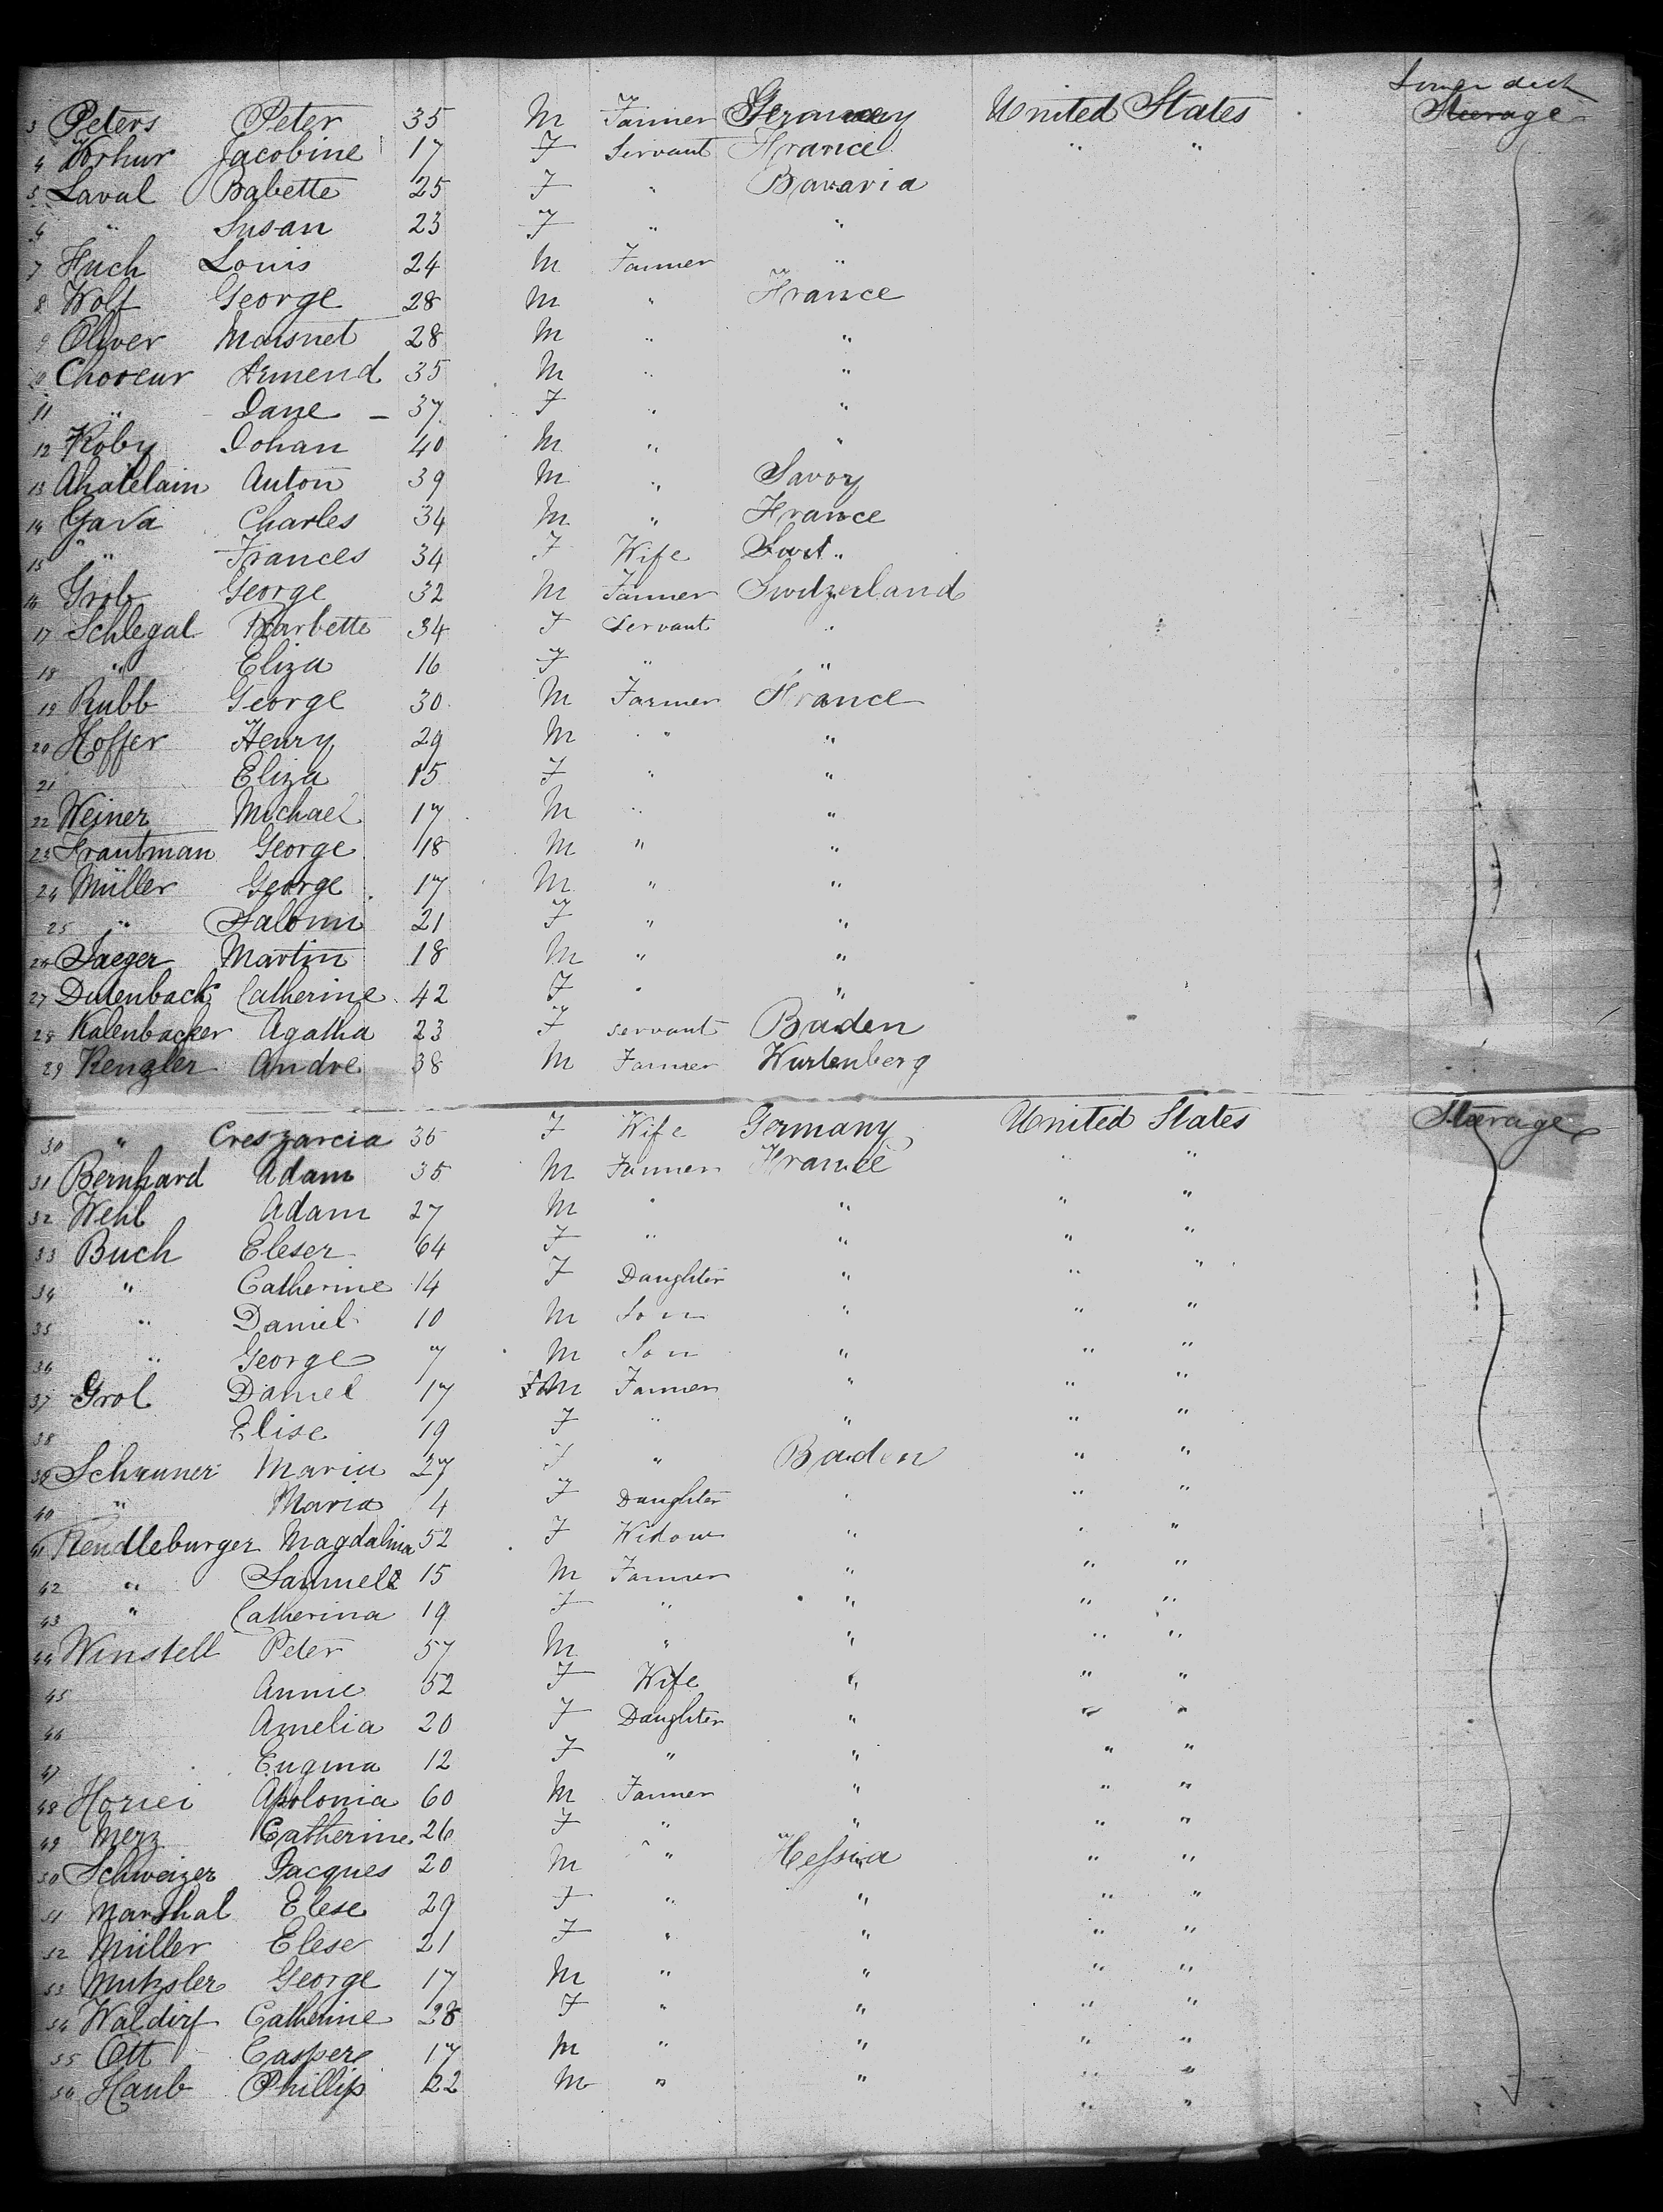 Lower deck
3 Peters Peter 35 M Farmer Germany United States Steerage
4 Jacobine 17 F Servant France " "
5 Laval Babette 25 F " Bavaria
6 " Susan 23 F " "
7 Huch Louis 24 M Farmer "
8 Wolf George 28 M " France
9 Oliver Maisnet 28 M " "
10 Choreur Armend 35 M " "
11 " Jane - 37 F " "
12 Koby Johan 40 M " "
13 Ahatelain Anton 39 M " Savoy
14 Gava Charles 34 M " France
15 " " Frances 34 F Wife "
16 Grob George 32 M Farmer Switzerland
17 Schlegal Barbette 34 F Servant "
18 " Eliza 16 F " "
19 Rubb George 30 M Farmer France
20 Hoffer Henry 29 M " "
21 Eliza 15 F " "
22 Weiner Michael 17 M " "
23 Trautman George 18 M " "
24 Müller George 17 M " "
25 " Salomi 21 F " "
26 Jaeger Martin 18 M " "
27 Dutenback Catherine 42 F " "
28 Kalenbacker Agatha 23 F servant Baden
29 Rengler Andre 38 M Farmer Wurtenberg
30 " Creszarcia 36 F Wife Germany United States Steerage
31 Bernhard Adam 35 M Farmer France " "
32 Wehl Adam 27 M " " " "
33 Buch Eleser 64 F " " " "
34 " Catherine 14 F Daughter " " "
35 " Daniel 10 M Son " " "
36 " George 7 M Son " " "
37 Grol Daniel 17 M Farmer " " "
38 Elise 19 F " " " "
39 Schruner Maria 27 F " Baden " "
40 " Maria 4 F Daughter " " "
41 Rendleburger Magdalina 52 F Widow " " "
42 " Samuel 15 M Farmer " " "
43 " Catherina 19 F " " " "
44 Winstell Peter 57 M " " " "
45 Annie 52 F Wife " " "
46 Amelia 20 F Daughter " " "
47 Eugina 12 F " " " "
48 Horiei Apolonia 60 M Farmer " " "
49 Merz Catherine 26 F " " " "
50 Schweizer Jacques 20 M " Hessia " "
51 Marshal Elese 29 F " " " "
52 Müller Elese 21 F " " " "
53 Mutzsler George 17 M " " " "
54 Waldirf Catherine 28 F " " " "
55 Ott Casper 17 M " " " "
56 Haub Phillip 22 M " " " "
" "